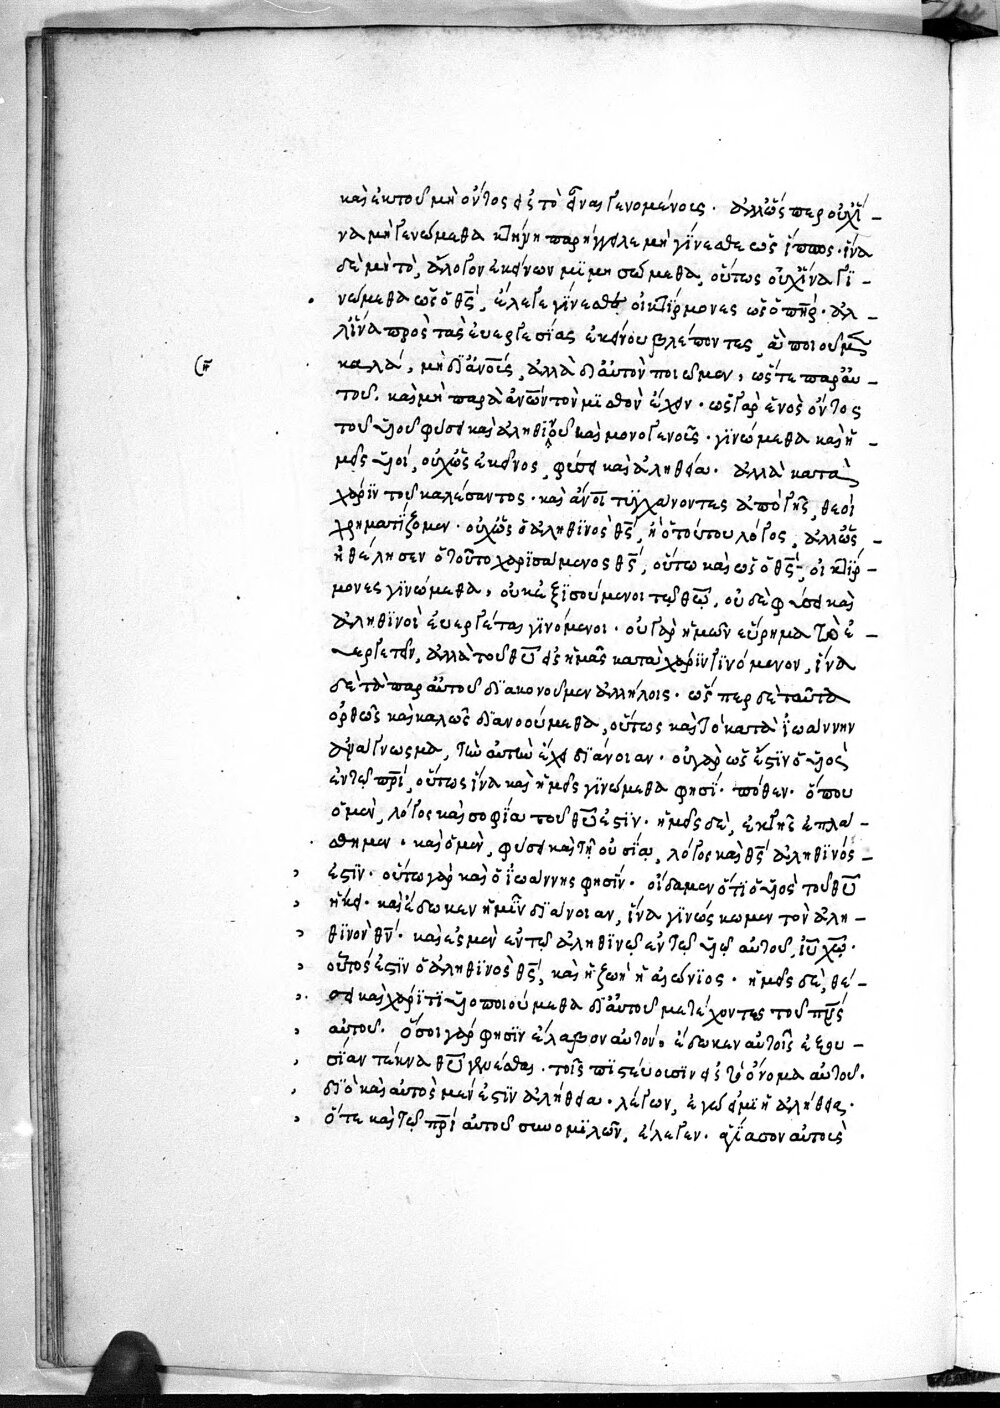 καὶ ἐκ τοῦ μὴ ὄντος εἰς τὸ εἶναι γενομένοις· ἀλλ' ὥσπερ οὐχ ἵ-
να μὴ γενώμεθα κτήνη παρήγγειλε μὴ γίνεσθε ὡς ἵππος· ἵνα
δὲ μὴ τὸ, ἄλογον ἐκείνων μϊμησώμεθα, οὕτως οὐχ ἵνα γϊ-
νώμεθα ὡς ὁ θς̅, ἔλεγε γίνεσθε οἰκτίρμονες ὡς ὁ πηρ̅· ἀλ-
λ' ἵνα πρὸς τὰς ἐυεργεσίας ἐκείνου βλέποντες, ἃ ποιοῦμεν
καλὰ, μὴ δι' ἀνους̅, ἀλλὰ δι' αὐτὸν ποιῶμεν, ὥστε παρ' ἀυ-
τοῦ. καὶ μὴ παρὰ ἀνων̅ τὸν μϊσθὸν ἔχειν· ὡς γὰρ ἑνὸς ὄντος
τοῦ υἱοῦ φύσει καὶ ἀληθινοῦ καὶ μονογενοῦς· γϊνώμεθα καὶ ἡ-
μεῖς υἱοὶ, οὐχ ὡς ἐκεῖνος, φύσει καὶ ἀληθεία· ἀλλὰ κατὰ
χάρϊν τοῦ καλέσαντος· καὶ ἀνοι̅ τϋγχάνοντες ἀπὸ γῆς, θεοὶ
χρηματίζομεν· οὐχ ὡς ὁ ἀληθϊνὸς θς̅, ἢ ὁ τούτου λόγος, ἀλλ' ὡς
ἠθέλησεν ὁ τοῦτο χαρϊσάμενος θς̅, οὕτω καὶ ὡς ὁ θς̅, οἰκτίρ-
μονες γϊνώμεθα, οὐκ ἐξϊσούμενοι τῷ θω̅, οὐδὲ φύσει καὶ
ἀληθϊνοὶ ἐυεργέται γϊνόμενοι· οὐ γὰρ ἡμῶν εὕρημα τὸ ἐ-
υεργετεῖν, ἀλλὰ τοῦ θυ̅ εἰς ἡμᾶς κατὰ χάρϊν γϊνόμενον, ἵνα
δὲ τὰ παρ' αὐτοῦ διακονοῦμεν ἀλλήλοις· ὥσπερ δὲ ταῦτα
ὀρθῶς καὶ καλῶς δϊανοούμεθα, οὕτως καὶ τὸ κατὰ ϊωάννην
ἀνάγνωσμα, τὴν αὐτὴν ἔχει δϊάνοιαν· οὐ γὰρ ὡς ἔστϊν ὁ υἱὸς
ἐν τῷ πρι̅, οὕτως ἵνα καὶ ἡμεῖς γϊνώμεθα φησὶ· πόθεν· ὅπου
ὁ μὲν, λόγος καὶ σοφία τοῦ θυ̅ ἐστϊν· ἡμεῖς δὲ, ἐκ γῆς ἐπλά-
σθημεν· καὶ ὁ μὲν, φύσει καὶ τῇ οὐσία, λόγος καὶ θς̅ ἀληθϊνός
ἐστϊν· οὕτω γὰρ καὶ ὁ ϊωάννης φησὶν· οἴδαμεν ὅτϊ ὁ υἱὸς τοῦ θυ̅
ἥκει· καὶ ἔδωκεν ἡμῖν δϊάνοιαν, ἵνα γϊνώσκωμεν τὸν ἀλη-
θϊνὸν θν̅· καὶ ἐσμὲν ἐν τῷ ἀληθϊνῷ ἐν τῷ υἱῷ αὐτοῦ, ιυ̅ χω̅·
οὗτός ἐστϊν ὁ ἀληθϊνὸς θς̅, καὶ ἡ ζωὴ ἡ αἰώνϊος· ἡμεῖς δὲ, θέ-
σει καὶ χάρϊτϊ υἱοποιούμεθα δι' αὐτοῦ μετέχοντες τοῦ πνς̅
αὐτοῦ· ὅσοι γάρ φησϊν ἔλαβον αὐτὸν, ἔδωκεν αὐτοῖς ἐξου-
σίαν τέκνα θυ̅ γενέσθαι· τοῖς πϊστέυουσϊν εἰς τὸ ὄνομα αὐτοῦ·
δϊὸ καὶ αὐτὸς μέν ἐστϊν ἀλήθεια· λέγων, ἐγώ εἰμϊ ἡ ἀλήθεια·
ὅτε καὶ τῷ πρι̅ αὐτοῦ συνομϊλῶν, ἔλεγεν· ἁγίασον αὐτοὺς